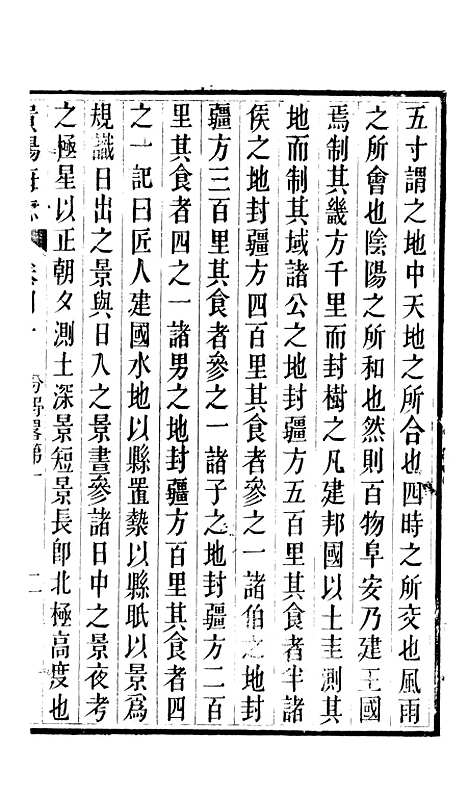 五寸謂之地中天地之所合也四時之所交也風雨
之所會也陰陽之所和也然則百物阜安乃建王國
焉制其畿方千里而封樹之凡建邦國以土圭測其
地而制其域諸公之地封疆方五百里其食者半諸
侯之地封疆方四百里其食者參之一諸伯之地封
疆方三百里其食者參之一諸子之地封疆方二百
里其食者四之一諸男之地封疆方百里其食者四
之一記曰匠人建國水地以縣置槷以縣眂以景爲
規識日出之景與日入之景晝參諸日中之景夜考
之極星以正朝夕測土深景短景長卽北極高度也
第一 二